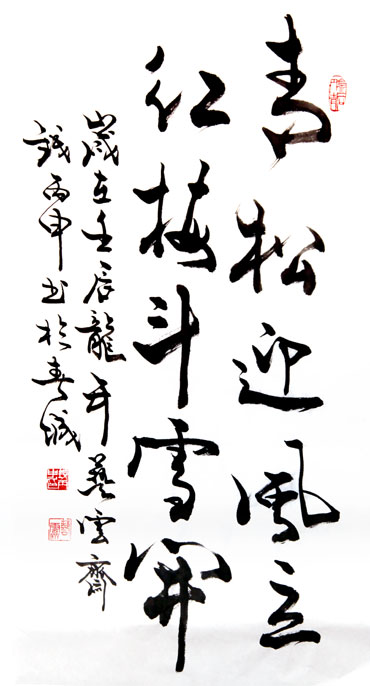 青松迎風立
红梅斗雪開
歲在壬辰龍年藝雲齋
錢丙申书於春城